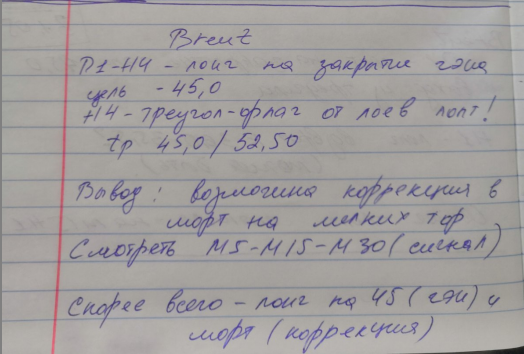 Brent
D1-H4 - лонг на закрытие гэпа
цель - 45,0
H4 - треугол-флаг от лоев лонг!
tp 45,0 / 52,50
Вывод: возможна коррекция в
шорт на мелких тф
Смотреть M5-M15-M30 (сигнал)
Скорее всего - лонг на 45 (гэп) и
шорт (коррекция)